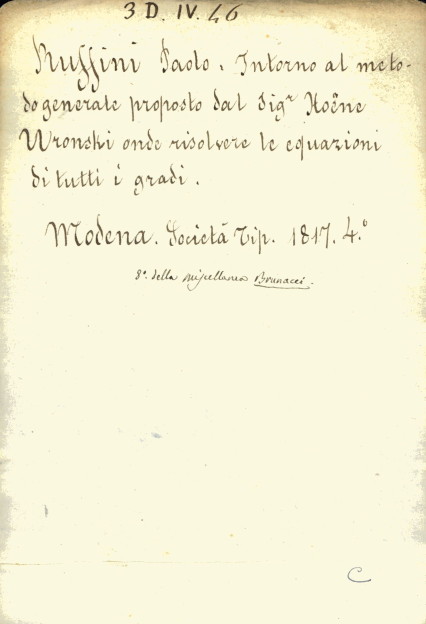 3 D. IV. 46
Ruffini Paolo. Intorno al meto-
do generale proposto dal Sigr Hoëne
Wronski onde risolvere le equazioni
di tutti i gradi.
Modena. Società Tip. 1817. 4.o
8o. della miscellanea Brunacci.
C